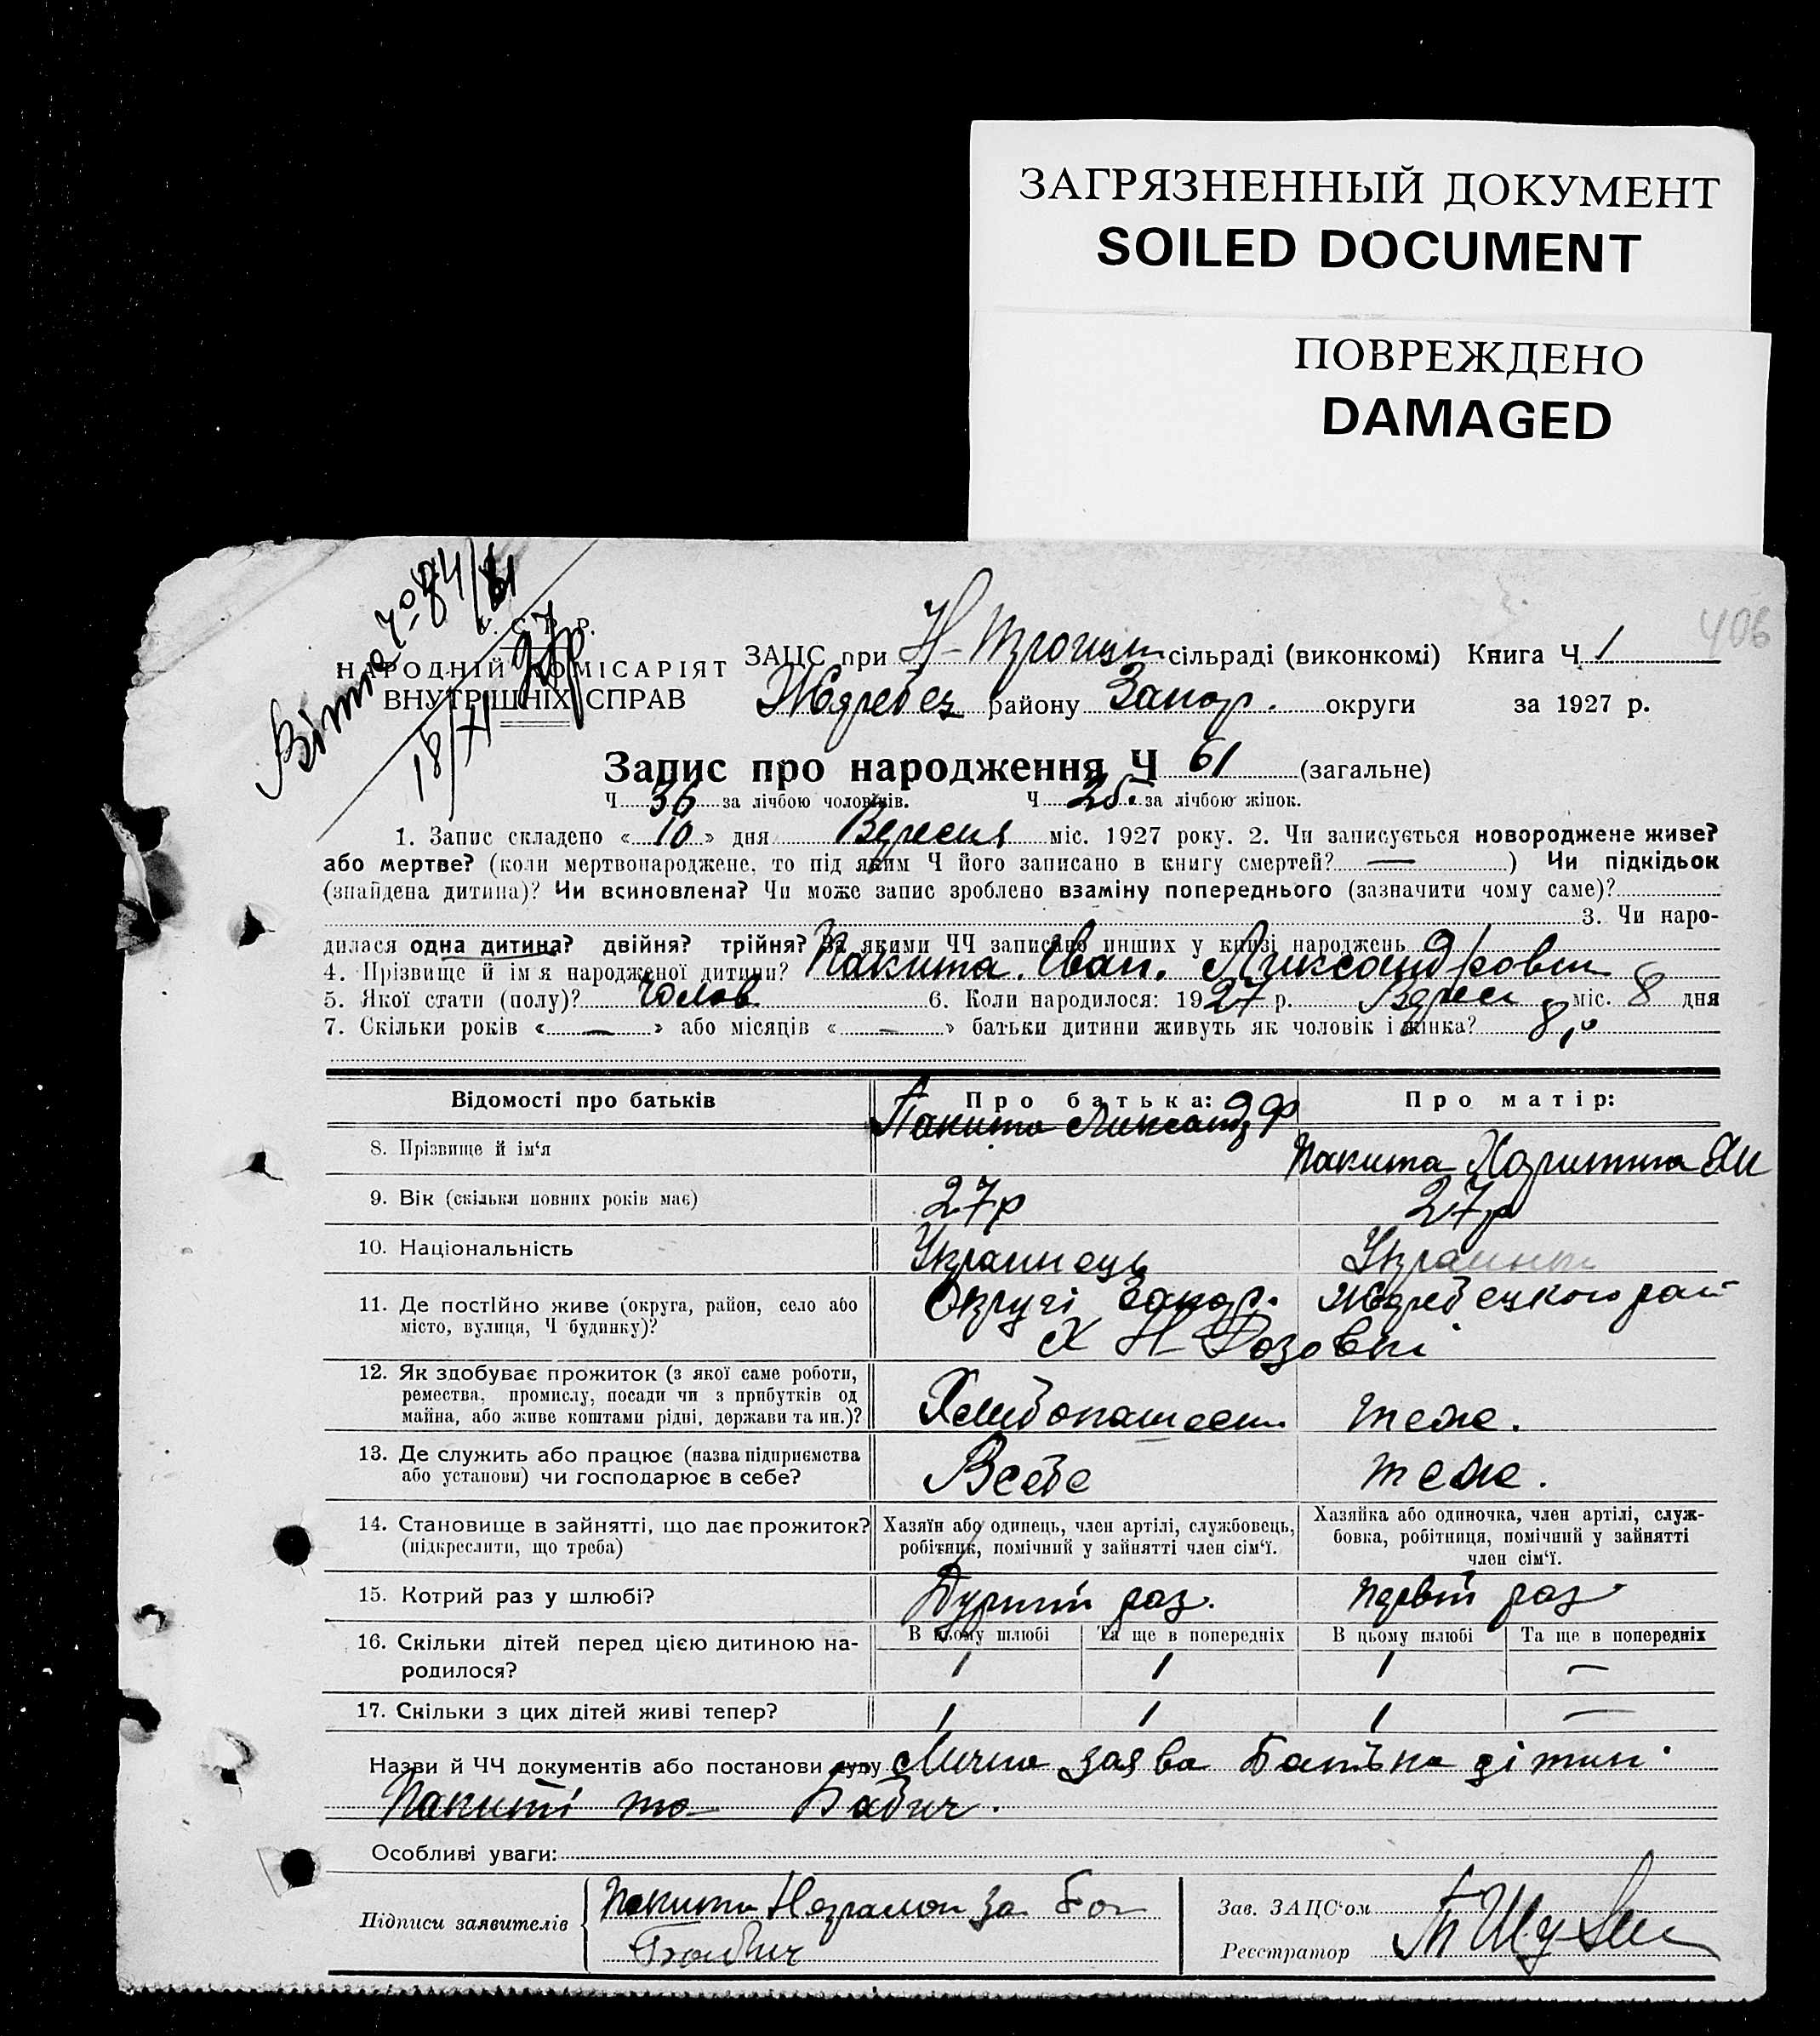 ЗАГРЯЗНЕННЫЙ ДОКУМЕНТ
SOILED DOCUMENT
ПОВРЕЖДЕНО
DAMAGED
406
У. С. Р. Р.
НАРОДНІЙ КОМІСАРІЯТ
ВНУТРІШНІХ СПРАВ
18/XI
ЗАЦС при сільраді (виконкомі) Книга Ч 1
Жеребец району Запор. округи за 1927 р.
Запис про народження Ч 61 (загальне)
Ч 36 за лічбою чоловіків. Ч 25 за лічбою жінок.
1. Запис складено « 10 » дня Вересня міс. 1927 року. 2. Чи записується новороджене живе?
або мертве? (коли мертвонароджене, то під яким Ч його записано в книгу смертей? — ) Чи підкідьок
(знайдена дитина)? Чи всиновлена? Чи може запис зроблено взаміну попереднього (зазначити чому саме)?
3. Чи наро-
дилася одна дитина? двійня? трійня? За якими ЧЧ записано инших у книзі народжень
4. Прізвище й ім'я народженої дитини? Пакита Іван.
5. Якої стати (полу)? Чолов 6. Коли народилося: 1927 р. Верес міс. 8 дня
7. Скільки років « — » або місяців « — » батьки дитини живуть як чоловік і жінка? 8
Відомості про батьків Про батька: Про матір:
8. Прізвище й ім'я Пакита Александр Ф Пакита Харитина Як
9. Вік (скільки повних років має) 27р 27р
10. Національність Украинець Украинка
11. Де постійно живе (округа, район, село або
місто, вулиця, Ч будинку)? Округі Запор. Жеребецкого рай
Х Н-Розовкі
12. Як здобуває прожиток (з якої саме роботи,
ремества, промислу, посади чи з прибутків од
майна, або живе коштами рідні, держави та ин.)? теже.
13. Де служить або працює (назва підприємства
або установи) чи господарює в себе? Всебе теже.
14. Становище в зайнятті, що дає прожиток?
(підкреслити, що треба)
Хазяїн або одинець, член артілі, службовець,
робітник, помічний у зайнятті член сім'ї.
Хазяйка або одиночка, член артілі, служ-
бовка, робітниця, помічний у зайнятті
член сім'ї.
15. Котрий раз у шлюбі? раз. первий раз
В цьому шлюбі Та ще в попередніх В цьому шлюбі Та ще в попередніх
16. Скільки дітей перед цією дитиною на-
родилося? 1 1 1 —
17. Скільки з цих дітей живі тепер? 1 1 1 —
Назви й ЧЧ документів або постанови суду Лична заява Батька дітини
Пакиті та Бабич.
Особливі уваги:
Підписи заявителів Пакита Неграмот за
Бабич
Зав. ЗАЦС'ом
Реєстратор